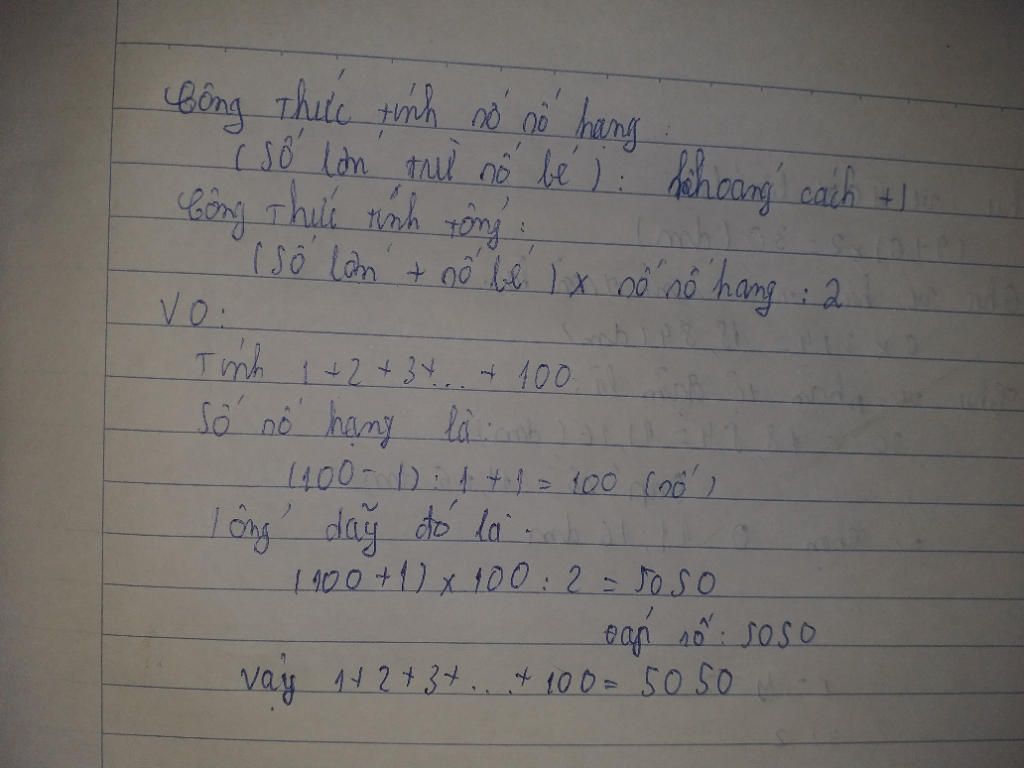 Công thức tính số số hạng:
(Số lớn trừ số bé) : khoảng cách +1
Công thức tính tổng:
(Số lớn + số bé) x số số hạng : 2
VD:
Tính 1+2+3+...+100
Số số hạng là:
(100-1):1+1=100 (số)
Tổng dãy đó là:
(100+1)x100:2=5050
Đáp số: 5050
Vậy 1+2+3+...+100=5050